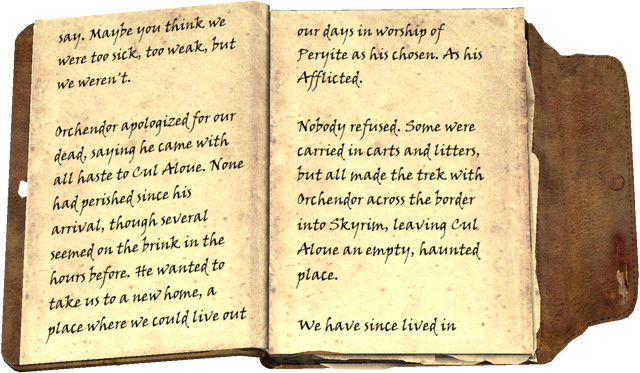 say. Maybe you think we
were too sick, too weak, but
we weren't.
Orchendor apologized for our
dead, saying he came with
all haste to Cul Aloue. None
had perished since his
arrival, though several
seemed on the brink in the
hours before. He wanted to
take us to a new home, a
place where we could live out
our days in worship of
Peryite as his chosen. As his
Afflicted.
Nobody refused. Some were
carried in carts and litters,
but all made the trek with
Orchendor across the border
into Skyrim, leaving Cul
Aloue an empty, haunted
place.
We have since lived in